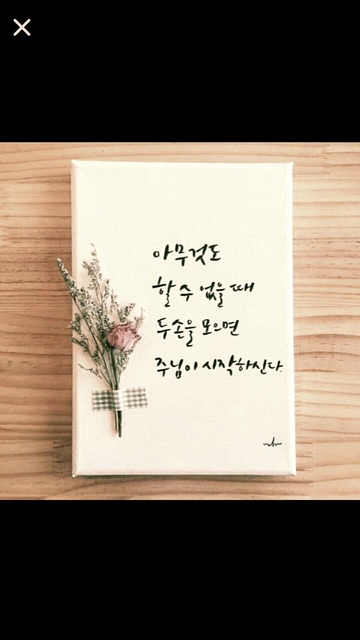 아무것도
할 수 없을 때
두손을 모으면
주님이 시작하신다.